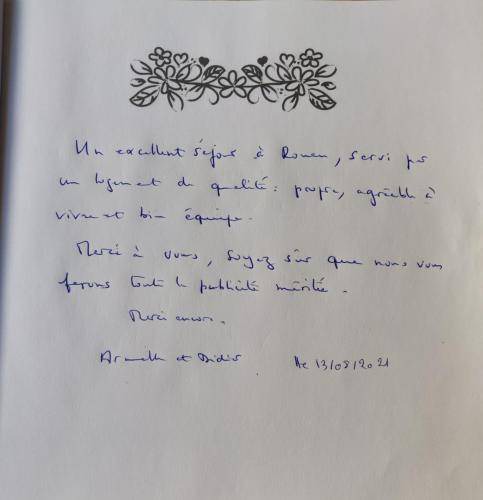 Un excellent séjour à Rouen, servi par
un logement de qualité : propre, agréable à
vivre et bien équipé.
Merci à vous, soyez sûr que nous vous
ferons toute la publicité méritée.
Merci encore.
Armelle et Didier le 13/08/2021